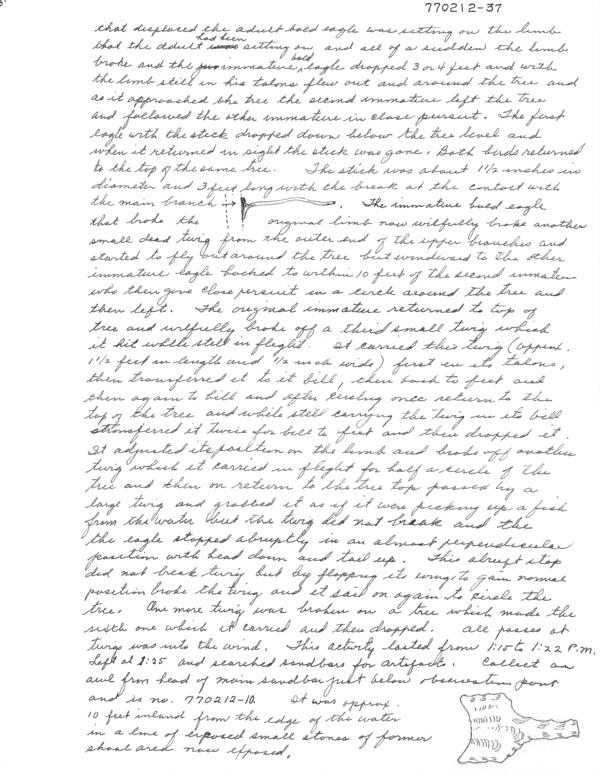 770212-37
that displaced the adult bald eagle was setting on the limb
that the adult had been sitting on and all of a sudden the limb
broke and the immature bald eagle dropped 3 or 4 feet and with
the limb still in his talons flew out and around the tree and
as it approached the tree the second immature left the tree
and followed the other immature in close persuit. The first
eagle with the stick dropped down below the tree level and
when it returned in sight the stick was gone. Both birds returned
to the top of the same tree. The stick was about 1 1/2 inches in
diameter and 3 feet long with the break at the contact with
the main branch. The immature bald eagle
that broke the original limb now wilfully broke another
small dead twig from the outer end of the upper branches and
started to fly out around the tree but windward to the other
immature eagle backed to within 10 feet of the second immature
who then gave close persuit in a circle around the tree and
then left. The original immature returned to top of
tree and wilfully broke off a third small twig which
it hit while still in flight. It carried this twig (approx.
1 1/2 feet in length and 1/2 inch wide) first in its talons,
then transferred it to it bill, then back to feet and
then again to bill and after circling once return to the
top of the tree and while still carrying the twig in its bill
transferred it twice for bill to feet and then dropped it.
It adjusted its position on the limb and broke off another
twig which it carried in flight for half a circle of the
tree and then on return to the tree top passed by a
large twig and grabbed it as if it were picking up a fish
from the water but the twig did not break and the
the eagle stopped abruptly in an almost perpendicular
position with head down and tail up. This abrupt stop
did not break twig but by flapping its wings to gain normal
position broke the twig and it said on again to circle the
tree. One more twig was broken on a tree which made the
sixth one which it carried and then dropped. All passes at
twigs was into the wind. This activity lasted from 1:15 to 1:22 P.M.
Left at 1:25 and searched sandbars for artifacts. Collect an
awl from head of main sandbar just below observation point
and is no. 770212-10. It was approx.
10 feet inland from the edge of the water
in a line of exposed small stones of former
shoal area now exposed.